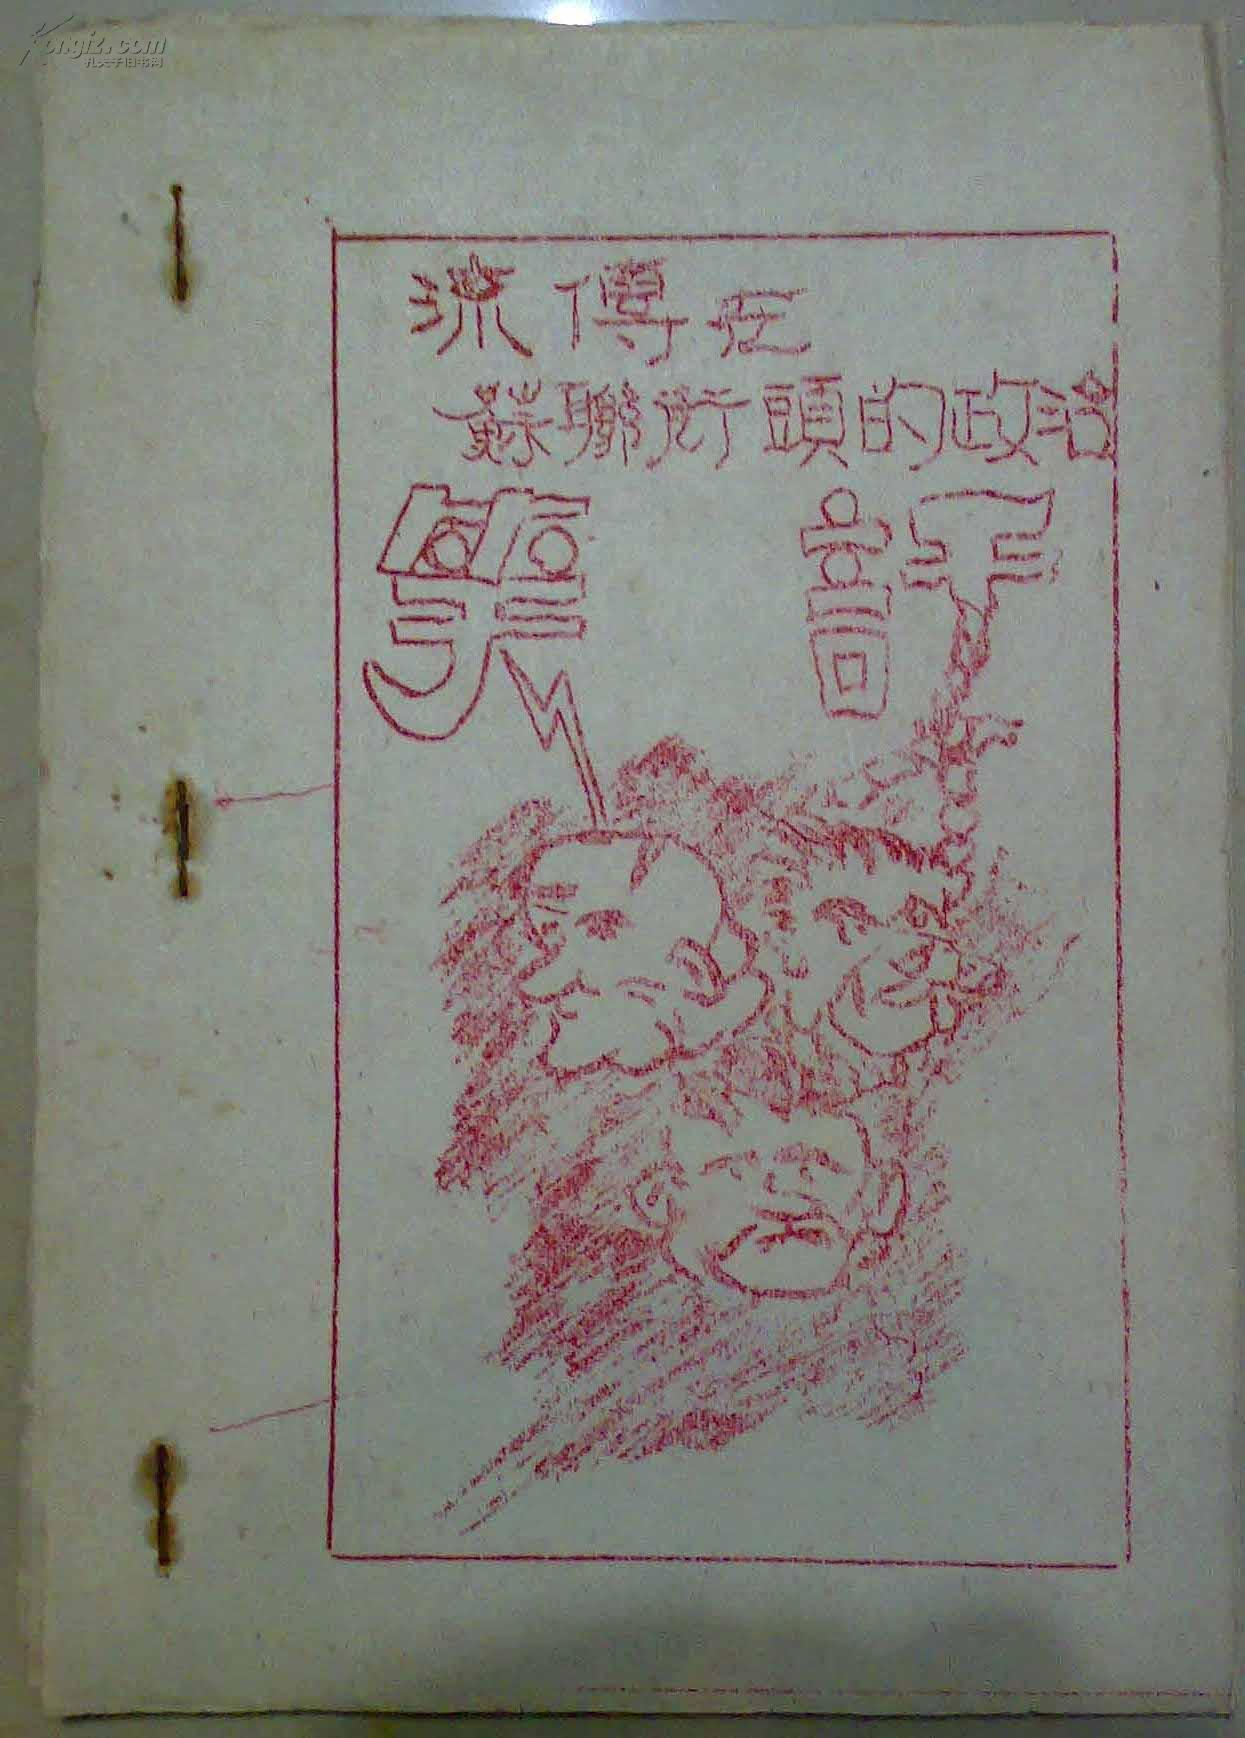 Kongfz.com
孔夫子旧书网
流傳在
蘇聯街頭的政治
笑話